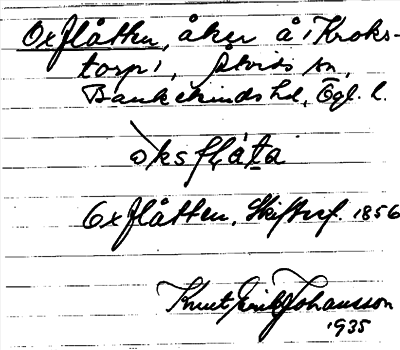 Oxflåtten, åker å Kroks-
torp, Åtvids sn,
Bankekinds hd, Ögl. l.
oksflåta
Oxflåtten, Skiftesf. 1856
Knut Erik Johansson
1935